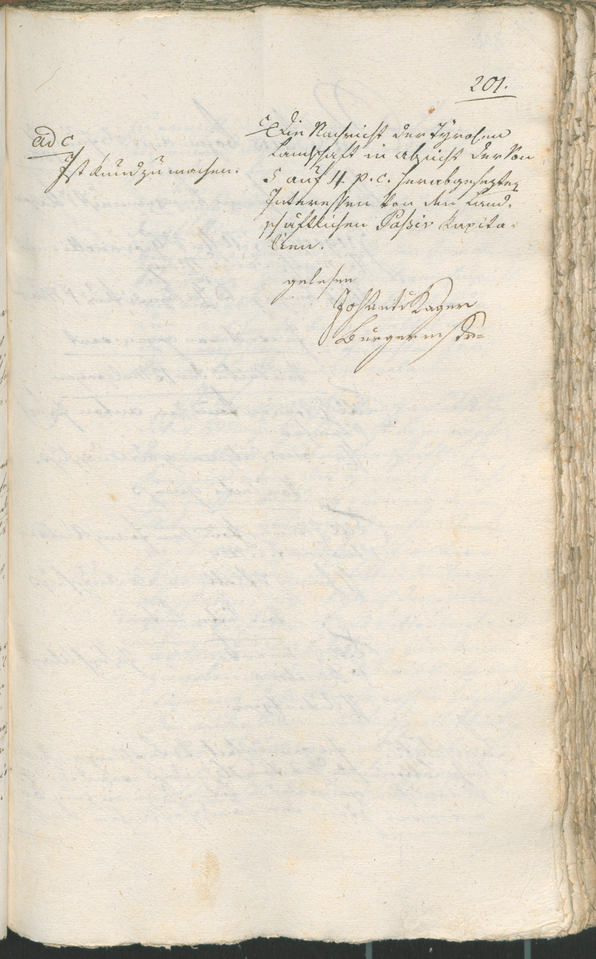 201.
ad c
Ist Kundzumachen.
c Die Nachricht der Tyrolen
Landschaft in absicht der von
5 auf 4 p. c. herabgesezten
Interessen von den Land,
schäftlichen Passiv Kapita-
lien.
gelesen
Johant v Kager
Burgermstr